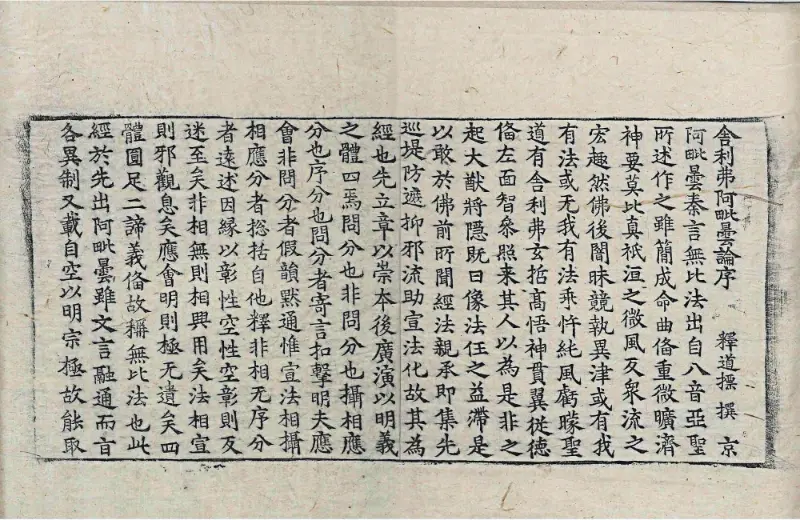 舍利弗阿毗曇論序 釋道摽 撰 京
阿毗曇秦言無比法出自八音亞聖
所述作之雖簡成命曲俻重微曠濟
神要莫比真祇洹之微風反衆流之
宏趣然佛後闇昧競執異津或有我
有法或无我有法乖忤純風虧矇聖
道有舍利弗玄哲高悟神貫翼從德
俻左面智叅照来其人以為是非之
起大猷將隱既曰像法任之益滯是
以敢於佛前所聞經法親承即集先
巡堤防遮抑邪流助宣法化故其為
經也先立章以崇本後廣演以明義
之體四焉問分也非問分也攝相應
分也序分也問分者寄言扣擊明夫應
會非問分者假韻默通惟宣法相攝
相應分者捴括自他釋非相无序分
者遠述因縁以彰性空性空彰則反
迷至矣非相無則相興用矣法相宣
則邪觀息矣應會明則極无遺矣四
體圓足二諦義俻故稱無比法也此
經於先出阿毗曇雖文言融通而旨
各異制又載自空以明宗極故能取